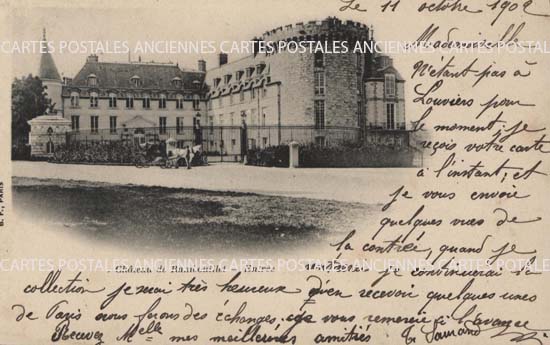 Le 11 octore 1902
Mademoiselle
N'étant pas à
Louviers pour
le moment, je
reçois votre carte
à l'instant, et
je vous envoie
quelques vues de
la contrée, quand je
continuerai la
collection je serai très heureux d'en recevoir quelques unes
de Paris nous ferons des échanges, je vous remercie à l'avance
Recevez Mlle mes meilleures amitiés
Château de Rambouillet - Entrée
B. F., PARIS
CARTES POSTALES ANCIENNES CARTES POSTALES ANCIENNES CARTES POSTALES ANCIENNES
CARTES POSTALES ANCIENNES CARTES POSTALES ANCIENNES CARTES POSTALES ANCIENNES